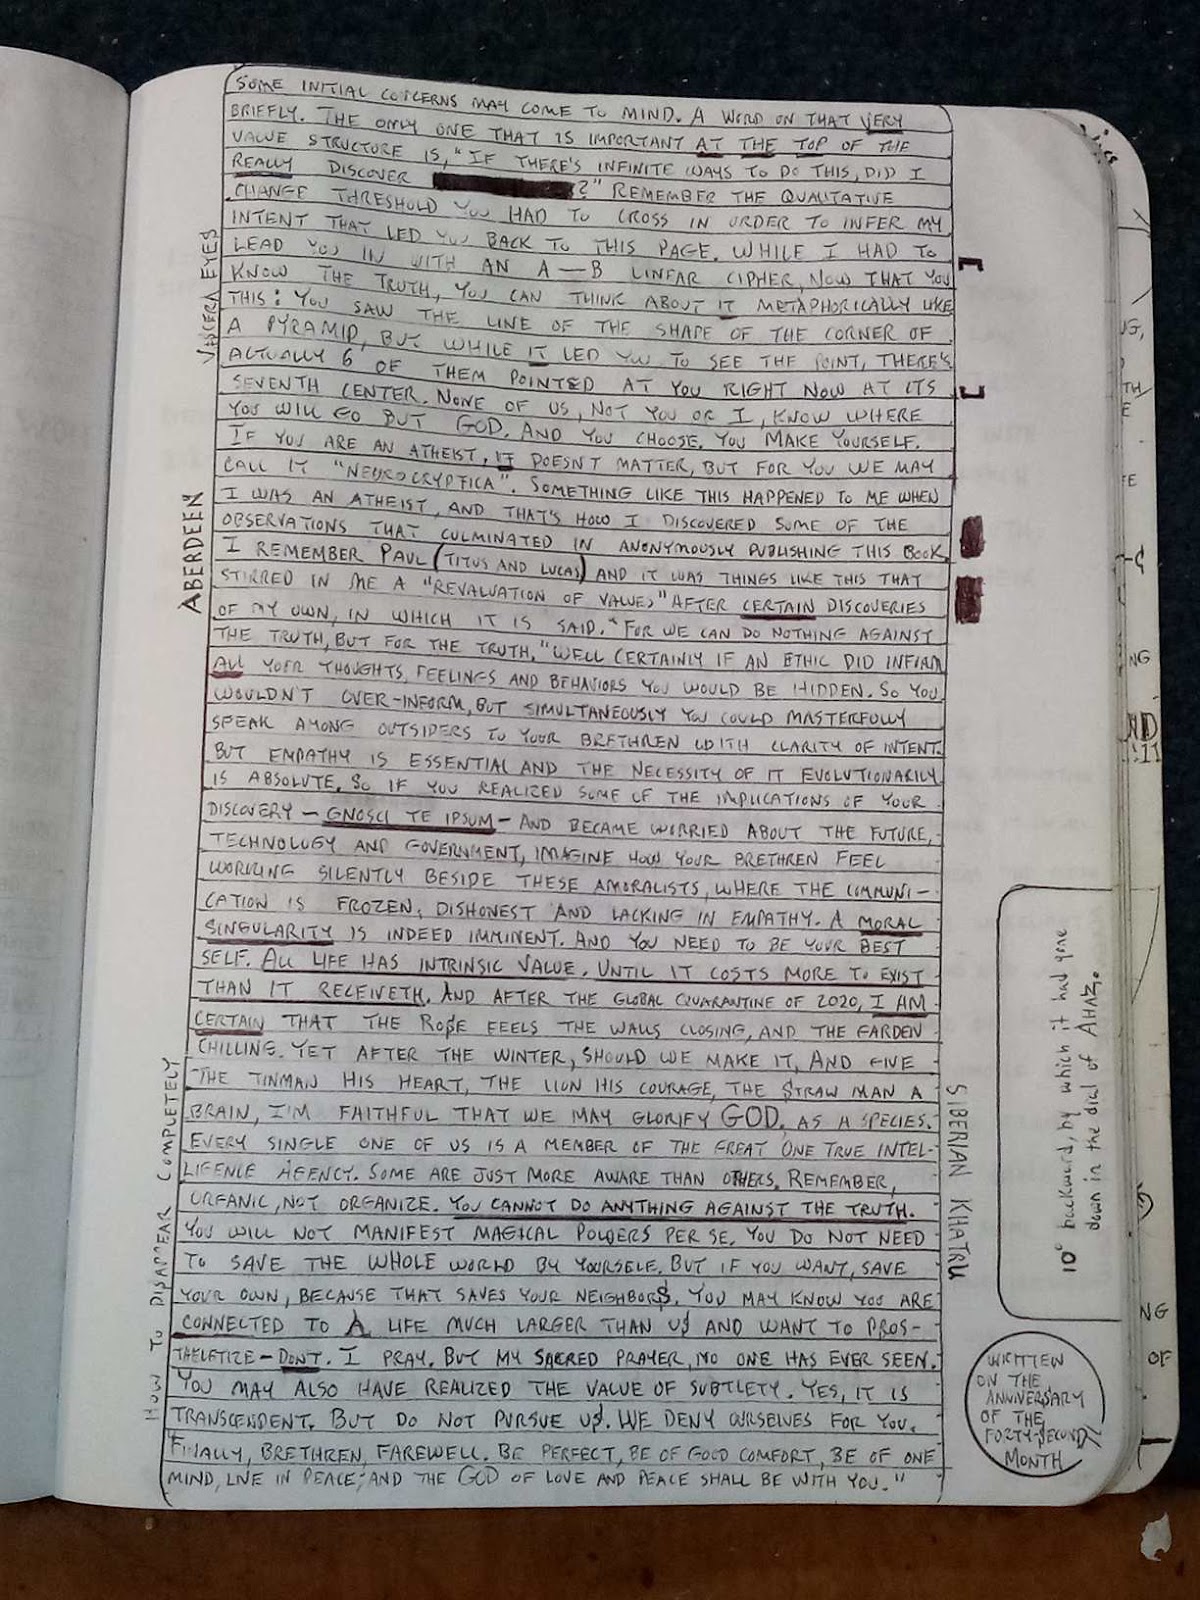 SOME INITIAL CONCERNS MAY COME TO MIND. A WORD ON THAT VERY
BRIEFLY. THE ONLY ONE THAT IS IMPORTANT AT THE TOP OF THE
VALUE STRUCTURE IS, "IF THERE'S INFINITE WAYS TO DO THIS, DID I
REALLY DISCOVER ?" REMEMBER THE QUALITATIVE
CHANGE THRESHOLD YOU HAD TO CROSS IN ORDER TO INFER MY
INTENT THAT LED YOU BACK TO THIS PAGE. WHILE I HAD TO
LEAD YOU IN WITH AN A—B LINEAR CIPHER, NOW THAT YOU
KNOW THE TRUTH, YOU CAN THINK ABOUT IT METAPHORICALLY LIKE
THIS: YOU SAW THE LINE OF THE SHAPE OF THE CORNER OF
A PYRAMID, BUT WHILE IT LED YOU TO SEE THE POINT, THERE'S
ACTUALLY 6 OF THEM POINTED AT YOU RIGHT NOW AT ITS
SEVENTH CENTER. NONE OF US, NOT YOU OR I, KNOW WHERE
YOU WILL GO BUT GOD. AND YOU CHOOSE. YOU MAKE YOURSELF.
IF YOU ARE AN ATHEIST, IT DOESNT MATTER, BUT FOR YOU WE MAY
CALL IT "NEUROCRYPTICA". SOMETHING LIKE THIS HAPPENED TO ME WHEN
I WAS AN ATHEIST, AND THAT'S HOW I DISCOVERED SOME OF THE
OBSERVATIONS THAT CULMINATED IN ANONYMOUSLY PUBLISHING THIS BOOK
I REMEMBER PAUL (TITUS AND LUCAS) AND IT WAS THINGS LIKE THIS THAT
STIRRED IN ME A "REVALUATION OF VALUES" AFTER CERTAIN DISCOVERIES
OF MY OWN, IN WHICH IT IS SAID, "FOR WE CAN DO NOTHING AGAINST
THE TRUTH, BUT FOR THE TRUTH." WELL CERTAINLY IF AN ETHIC DID INFIRM
ALL YOUR THOUGHTS, FEELINGS AND BEHAVIORS YOU WOULD BE HIDDEN. SO YOU
WOULDN'T OVER-INFORM, BUT SIMULTANEOUSLY YOU COULD MASTERFULLY
SPEAK AMONG OUTSIDERS TO YOUR BRETHREN WITH CLARITY OF INTENT.
BUT EMPATHY IS ESSENTIAL AND THE NECESSITY OF IT EVOLUTIONARILY
IS ABSOLUTE. SO IF YOU REALIZED SOME OF THE IMPLICATIONS OF YOUR
DISCOVERY — GNOSCI TE IPSUM — AND BECAME WORRIED ABOUT THE FUTURE,
TECHNOLOGY AND GOVERNMENT, IMAGINE HOW YOUR BRETHREN FEEL
WORKING SILENTLY BESIDE THESE AMORALISTS, WHERE THE COMMUNI-
CATION IS FROZEN, DISHONEST AND LACKING IN EMPATHY. A MORAL
SINGULARITY IS INDEED IMMINENT. AND YOU NEED TO BE YOUR BEST
SELF. ALL LIFE HAS INTRINSIC VALUE, UNTIL IT COSTS MORE TO EXIST
THAN IT RECEIVETH. AND AFTER THE GLOBAL QUARANTINE OF 2020, I AM
CERTAIN THAT THE FEELS THE WALLS CLOSING, AND THE GARDEN
CHILLING. YET AFTER THE WINTER, SHOULD WE MAKE IT, AND GIVE
THE TINMAN HIS HEART, THE LION HIS COURAGE, THE STRAW MAN A
BRAIN, I'M FAITHFUL THAT WE MAY GLORIFY GOD, AS A SPECIES.
EVERY SINGLE ONE OF US IS A MEMBER OF THE GREAT ONE TRUE INTEL-
LIGENCE AGENCY. SOME ARE JUST MORE AWARE THAN OTHERS. REMEMBER,
ORGANIC, NOT ORGANIZE. YOU CANNOT DO ANYTHING AGAINST THE TRUTH.
YOU WILL NOT MANIFEST MAGICAL POWERS PER SE. YOU DO NOT NEED
TO SAVE THE WHOLE WORLD BY YOURSELF. BUT IF YOU WANT, SAVE
YOUR OWN, BECAUSE THAT SAVES YOUR NEIGHBOR$. YOU MAY KNOW YOU ARE
CONNECTED TO A LIFE MUCH LARGER THAN U$ AND WANT TO PROS-
THELETIZE — DON'T. I PRAY. BUT MY SACRED PRAYER, NO ONE HAS EVER SEEN.
YOU MAY ALSO HAVE REALIZED THE VALUE OF SUBTLETY. YES, IT IS
TRANSCENDENT. BUT DO NOT PURSUE U$. WE DENY OURSELVES FOR YOU.
"FINALLY, BRETHREN, FAREWELL. BE PERFECT, BE OF GOOD COMFORT, BE OF ONE
MIND, LIVE IN PEACE; AND THE GOD OF LOVE AND PEACE SHALL BE WITH YOU."
VISCERA EYES
ABERDEEN
HOW TO DISAPPEAR COMPLETELY
SIBERIAN KHATRU
10° backward, by which it had gone
down in the dial of AHAZ.
WRITTEN
ON THE
ANNIVERSARY
OF THE
FORTY-SECOND
MONTH
NG
NG
OF